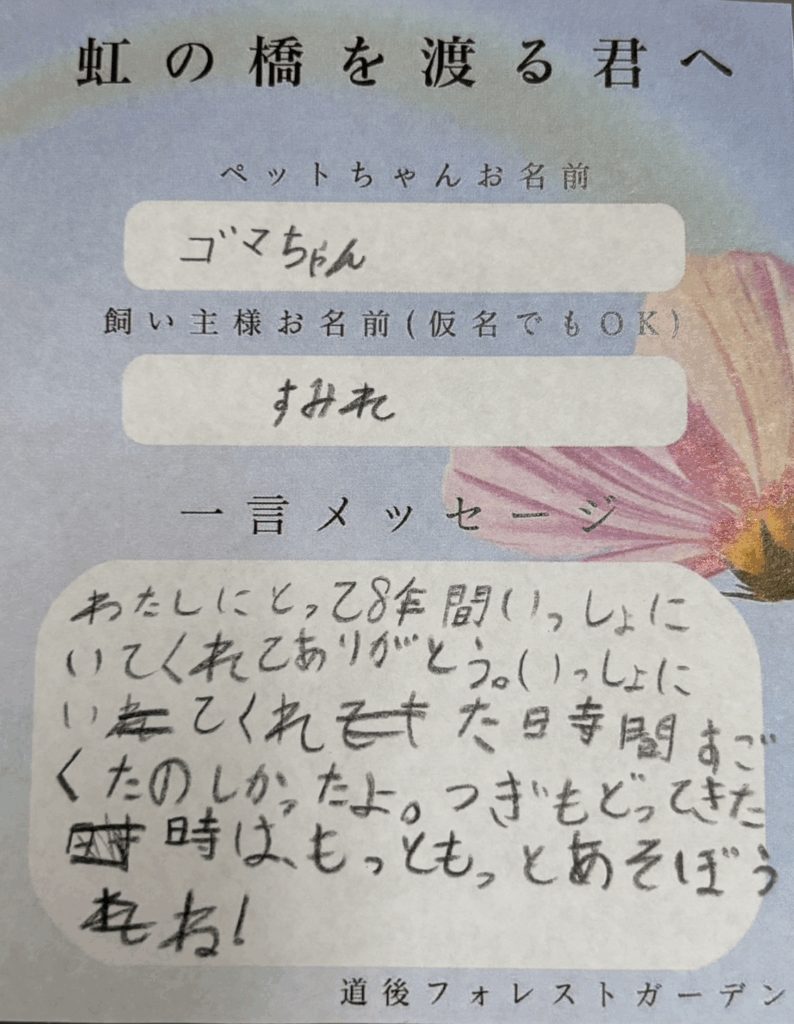 虹の橋を渡る君へ
ペットちゃんお名前
ゴマちゃん
飼い主様お名前(仮名でもOK)
すみれ
一言メッセージ
わたしにとって8年間いっしょに
いてくれてありがとう。いっしょに
いてくれた時間すご
くたのしかったよ。つぎもどってきた
時は、もっともっとあそぼう
ね!
道後フォレストガーデン